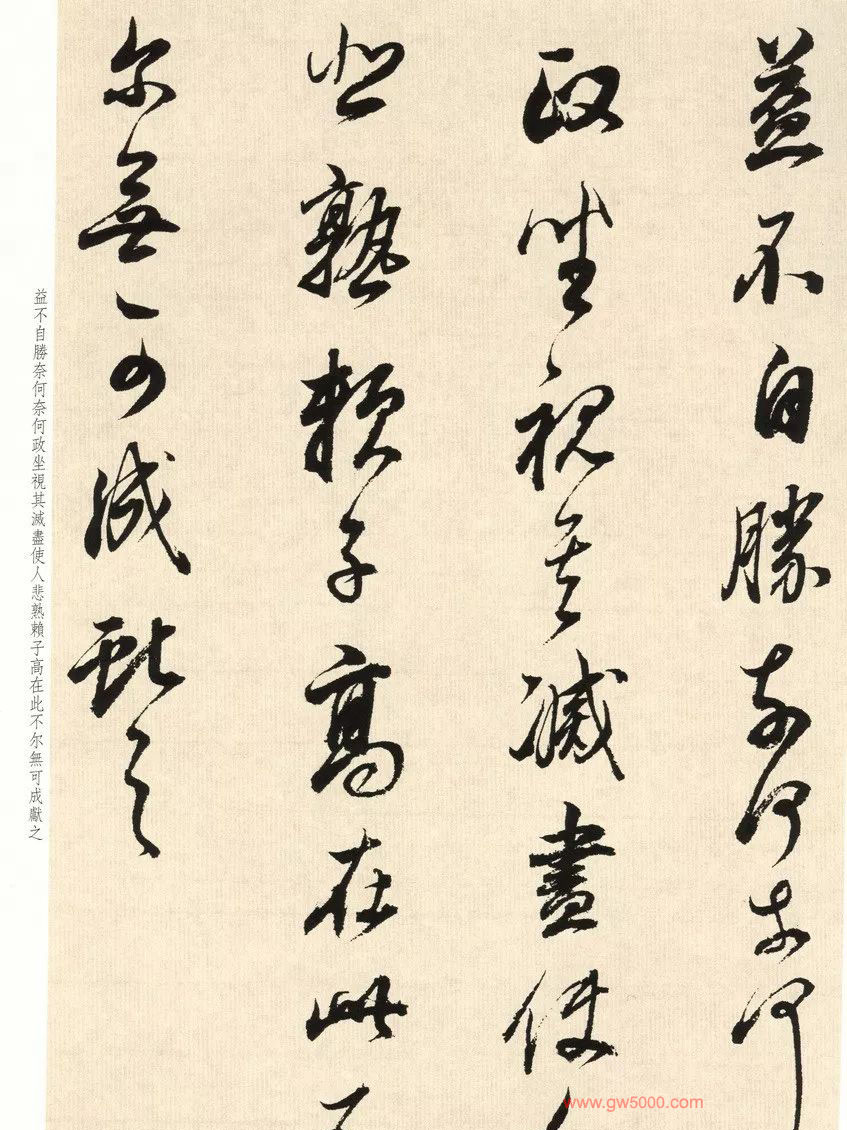 益不自勝奈何奈何
政坐視其滅盡使人
悲熟頼子高在此不
尔無可成獻之
益不自勝奈何奈何政坐視其滅盡使人悲熟賴子高在此不尔無可成獻之
www.gw5000.com